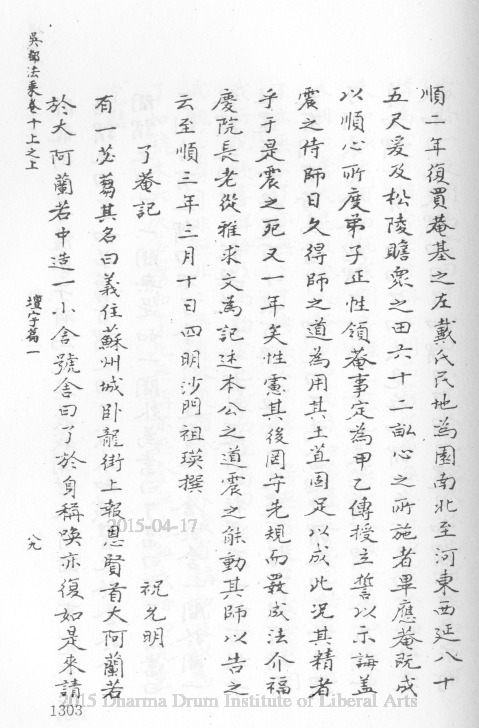 順二年復買菴基之左戴氏民地為園南北至河東西延八十
五尺爰及松陵瞻衆之田六十二畝心之所施者畢應菴既成
以順心所度弟子正性領菴事定為甲乙傳授立誓以示誨盖
震之侍師日久得師之道為用其土苴固足以成此况其精者
乎于是震之死又一年矣性憲其後罔守先規而戮成法介福
慶院長老從雅求文為記述本公之道震之能動其師以告之
云至順三年三月十日四明沙門祖瑛撰
了菴記
祝允明
有一苾蒭其名曰義住蘇州城卧龍街上報恩賢首大阿蘭若
於大阿蘭若中造一小舍號舍曰了於身稱喚亦復如是來請
吳都法乘卷十上之上
壇宇篇一
八九
1303
2015-04-17
2015 Dharma Drum Institute of Liberal Arts